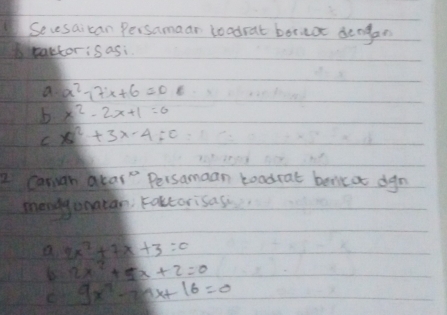 1. Selesaikan Persamaan koadrat berikut dengan
faktorisasi.
a. x² - 7x + 6 = 0
b. x² - 2x + 1 = 0
c. x² + 3x - 4 = 0
2. Carilah akar" Persamaan koadrat berikut dgn
Faktorisasi
a. 2x² + 7x + 3 = 0
b. 2x² + 5x + 2 = 0
c. 9x² - 24x + 16 = 0